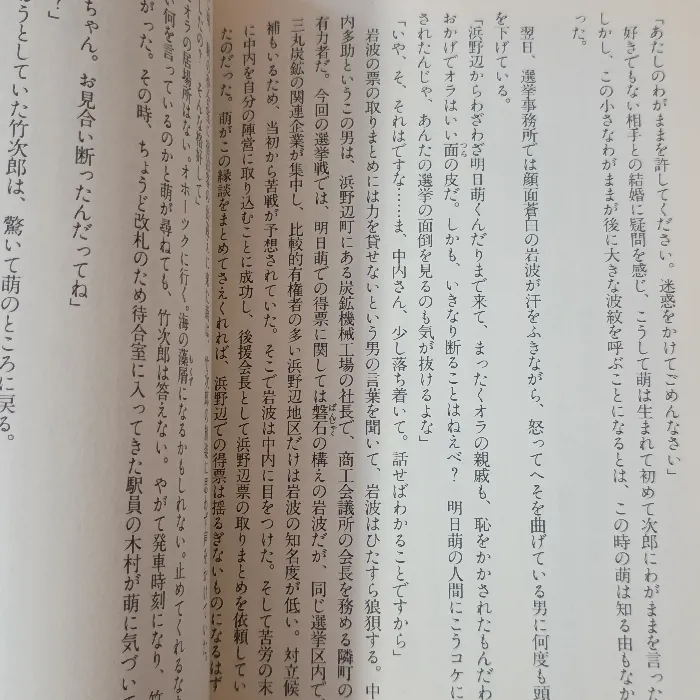 「あたしのわがままを許してください。迷惑をかけてごめんなさい」
好きでもない相手との結婚に疑問を感じ、こうして萌は生まれて初めて次郎にわがままを言った
しかし、この小さなわがままが後に大きな波紋を呼ぶことになるとは、この時の萌は知る由もな
った。
翌日、選挙事務所では顔面蒼白の岩波が汗をふきながら、怒ってへそを曲げている男に何度も頭
を下げている。
「浜野辺からわざわざ明日萌くんだりまで来て、まったくオラの親戚も、恥をかかされたもんだわ
おかげでオラはいい面の皮だ。しかも、いきなり断ることはねえべ？　明日萌の人間にこうコケに
されたんじゃ、あんたの選挙の面倒を見るのも気が抜けるよな」
「いや、そ、それはですな……ま、中内さん、少し落ち着いて。話せばわかることですから」
岩波の票の取りまとめには力を貸せないという男の言葉を聞いて、岩波はひたすら狼狽する。中
内多助というこの男は、浜野辺町にある炭鉱機械工場の社長で、商工会議所の会長を務める隣町の
有力者だ。今回の選挙戦では、明日萌での得票に関しては磐石の構えの岩波だが、同じ選挙区内で
三丸炭鉱の関連企業が集中し、比較的有権者の多い浜野辺地区だけは岩波の知名度が低い。対立候
補もいるため、当初から苦戦が予想されていた。そこで岩波は中内に目をつけた。そして苦労の末
に中内を自分の陣営に取り込むことに成功し、後援会長として浜野辺票の取りまとめを依頼してい
たのだった。萌がこの縁談をまとめてさえくれれば、浜野辺での得票は揺るぎないものになるはず
オラの居場所はない。オホーツクに行く。海の藻屑になるかもしれない。止めてくれるな
い何を言っているのかと萌が尋ねても、竹次郎は答えない。やがて発車時刻になり、竹
がった。その時、ちょうど改札のため待合室に入ってきた駅員の木村が萌に気づいて
ちゃん。お見合い断ったんだってね」
？」
うとしていた竹次郎は、驚いて萌のところに戻る。